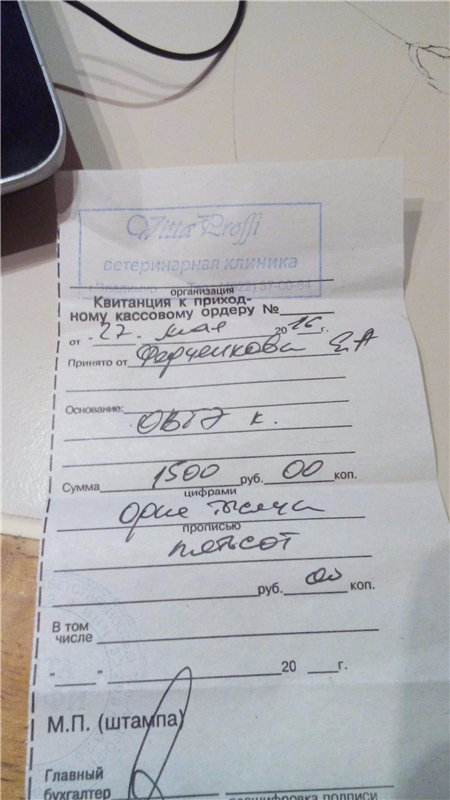 Vitta Proffi
ветеринарная клиника
г. Владимир 37-00-84
организация
Квитанция к приход-
ному кассовому ордеру №
от "27" мая 2016 г.
Принято от Е.А
Основание:
ОВГЭ к.
Сумма 1500 руб. 00 коп.
цифрами
одне тысяча
прописью
пятьсот
руб. 00 коп.
В том
числе
" " 20 г.
М.П. (штампа)
Главный
бухгалтер расшифровка подписи